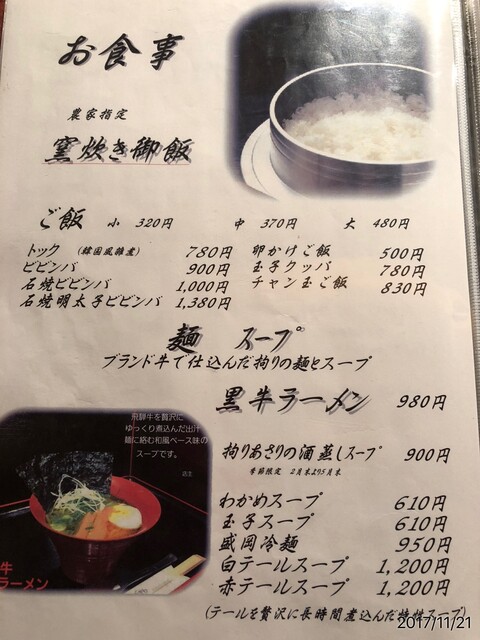 お食事
農家指定
窯炊き御飯
ご飯 小 320円 中 370円 大 480円
トック (韓国風雑煮) 780円
ビビンバ 900円
石焼ビビンバ 1,000円
石焼明太子ビビンバ 1,380円
卵かけご飯 500円
玉子クッパ 780円
チャン玉ご飯 830円
麺 スープ
ブランド牛で仕込んだ拘りの麺とスープ
黒牛ラーメン 980円
飛騨牛を贅沢に
ゆっくり煮込んだ出汁
麺に絡む和風ベース味の
スープです。
店主
牛
ラーメン
拘りあさりの酒蒸しスープ 900円
季節限定 2月末より5月末
わかめスープ 610円
玉子スープ 610円
盛岡冷麺 950円
白テールスープ 1,200円
赤テールスープ 1,200円
(テールを贅沢に長時間煮込んだ特性スープ)
2017/11/21